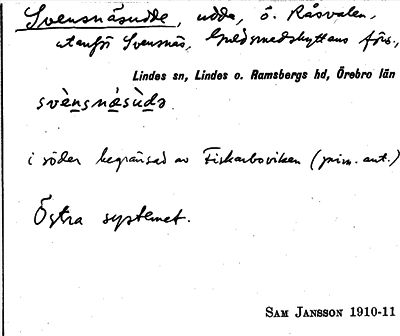 Svensnäsudde, udde, ö. Råsvalen,
utanför Svensnäs, Guldsmedshyttans förs.,
Lindes sn, Lindes o. Ramsbergs hd, Örebro län
svènsnäsùdə.
i söder begränsad av Fiskarboviken (prim. ant.)
Östra systemet.
SAM JANSSON 1910-11